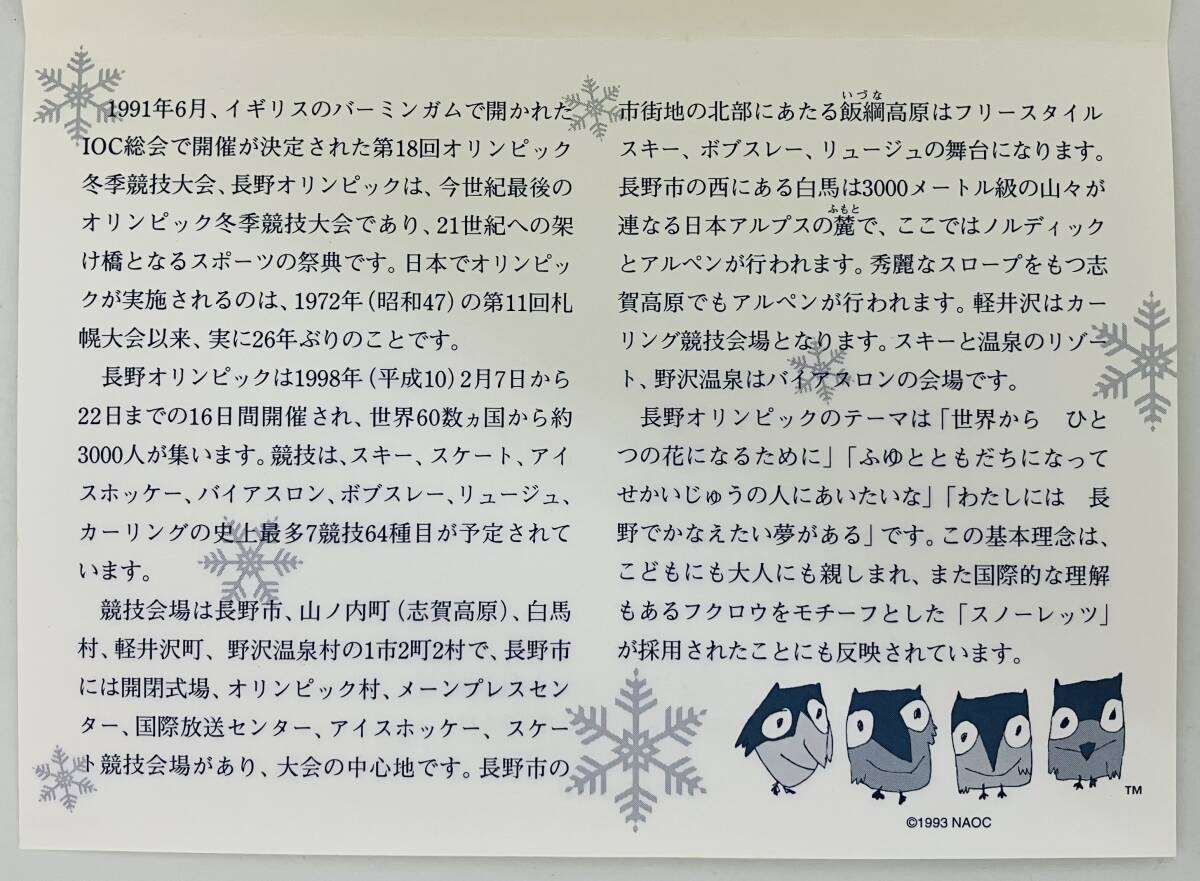 1991年6月、イギリスのバーミンガムで開かれた
IOC総会で開催が決定された第18回オリンピック
冬季競技大会、長野オリンピックは、今世紀最後の
オリンピック冬季競技大会であり、21世紀への架
け橋となるスポーツの祭典です。日本でオリンピッ
クが実施されるのは、1972年(昭和47)の第11回札
幌大会以来、実に26年ぶりのことです。
長野オリンピックは1998年(平成10)2月7日から
22日までの16日間開催され、世界60数ヵ国から約
3000人が集います。競技は、スキー、スケート、アイ
スホッケー、バイアスロン、ボブスレー、リュージュ、
カーリングの史上最多7競技64種目が予定されて
います。
競技会場は長野市、山ノ内町(志賀高原)、白馬
村、軽井沢町、野沢温泉村の1市2町2村で、長野市
には開閉式場、オリンピック村、メーンプレスセン
ター、国際放送センター、アイスホッケー、スケー
ト競技会場があり、大会の中心地です。長野市の
いづな
市街地の北部にあたる飯綱高原はフリースタイル
スキー、ボブスレー、リュージュの舞台になります。
長野市の西にある白馬は3000メートル級の山々が
ふもと
連なる日本アルプスの麓で、ここではノルディック
とアルペンが行われます。秀麗なスロープをもつ志
賀高原でもアルペンが行われます。軽井沢はカー
リング競技会場となります。スキーと温泉のリゾー
ト、野沢温泉はバイアスロンの会場です。
長野オリンピックのテーマは「世界から ひと
つの花になるために」「ふゆとともだちになって
せかいじゅうの人にあいたいな」「わたしには 長
野でかなえたい夢がある」です。この基本理念は、
こどもにも大人にも親しまれ、また国際的な理解
もあるフクロウをモチーフとした「スノーレッツ」
が採用されたことにも反映されています。
TM
©1993 NAOC